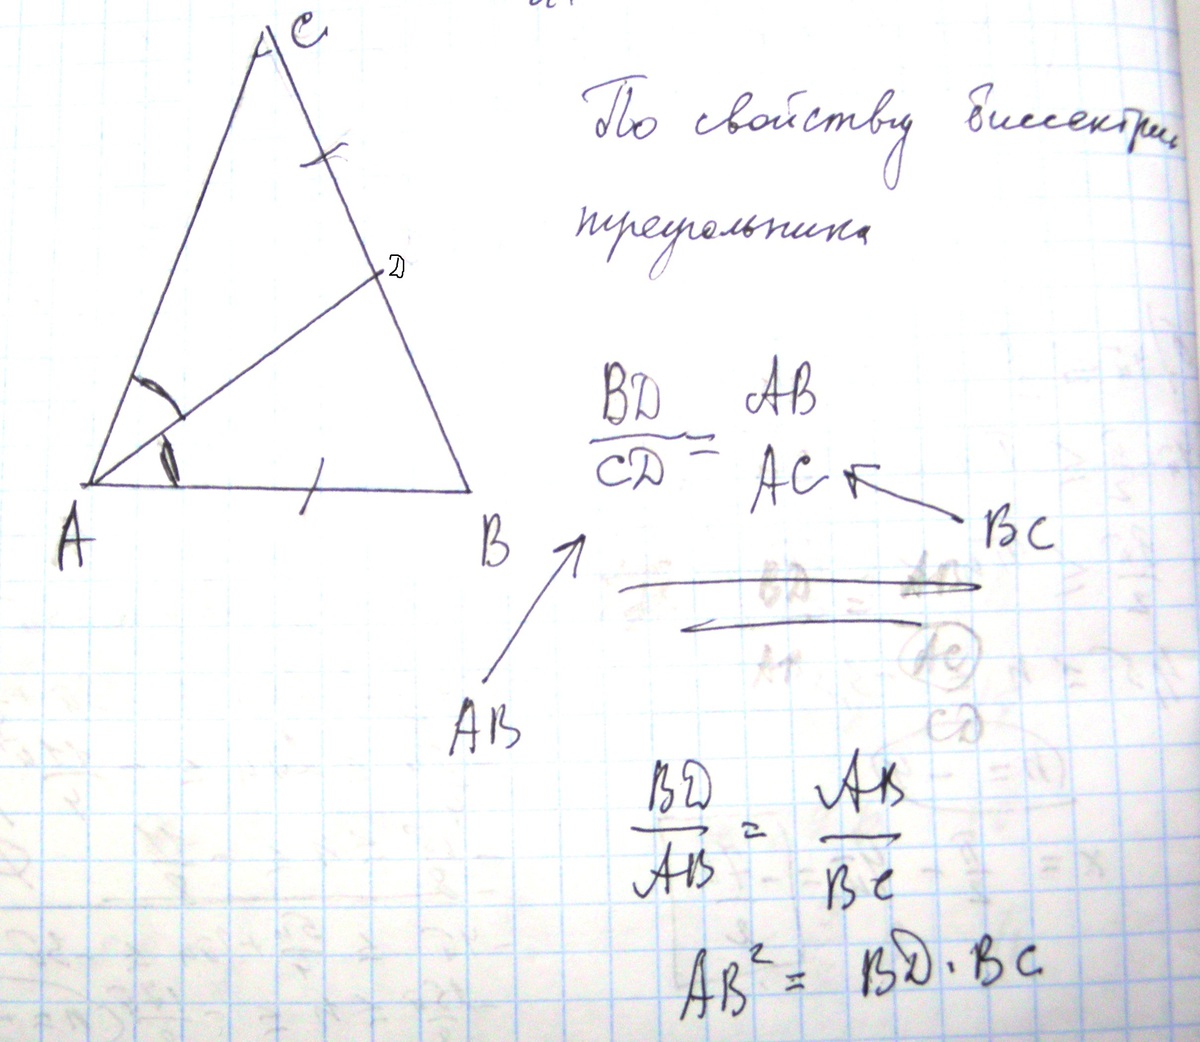 C
По свойству биссектри
треугольника
D
BD AB
CD = AC
A B BC
AB
BD AB
— = —
AB BC
AB² = BD · BC